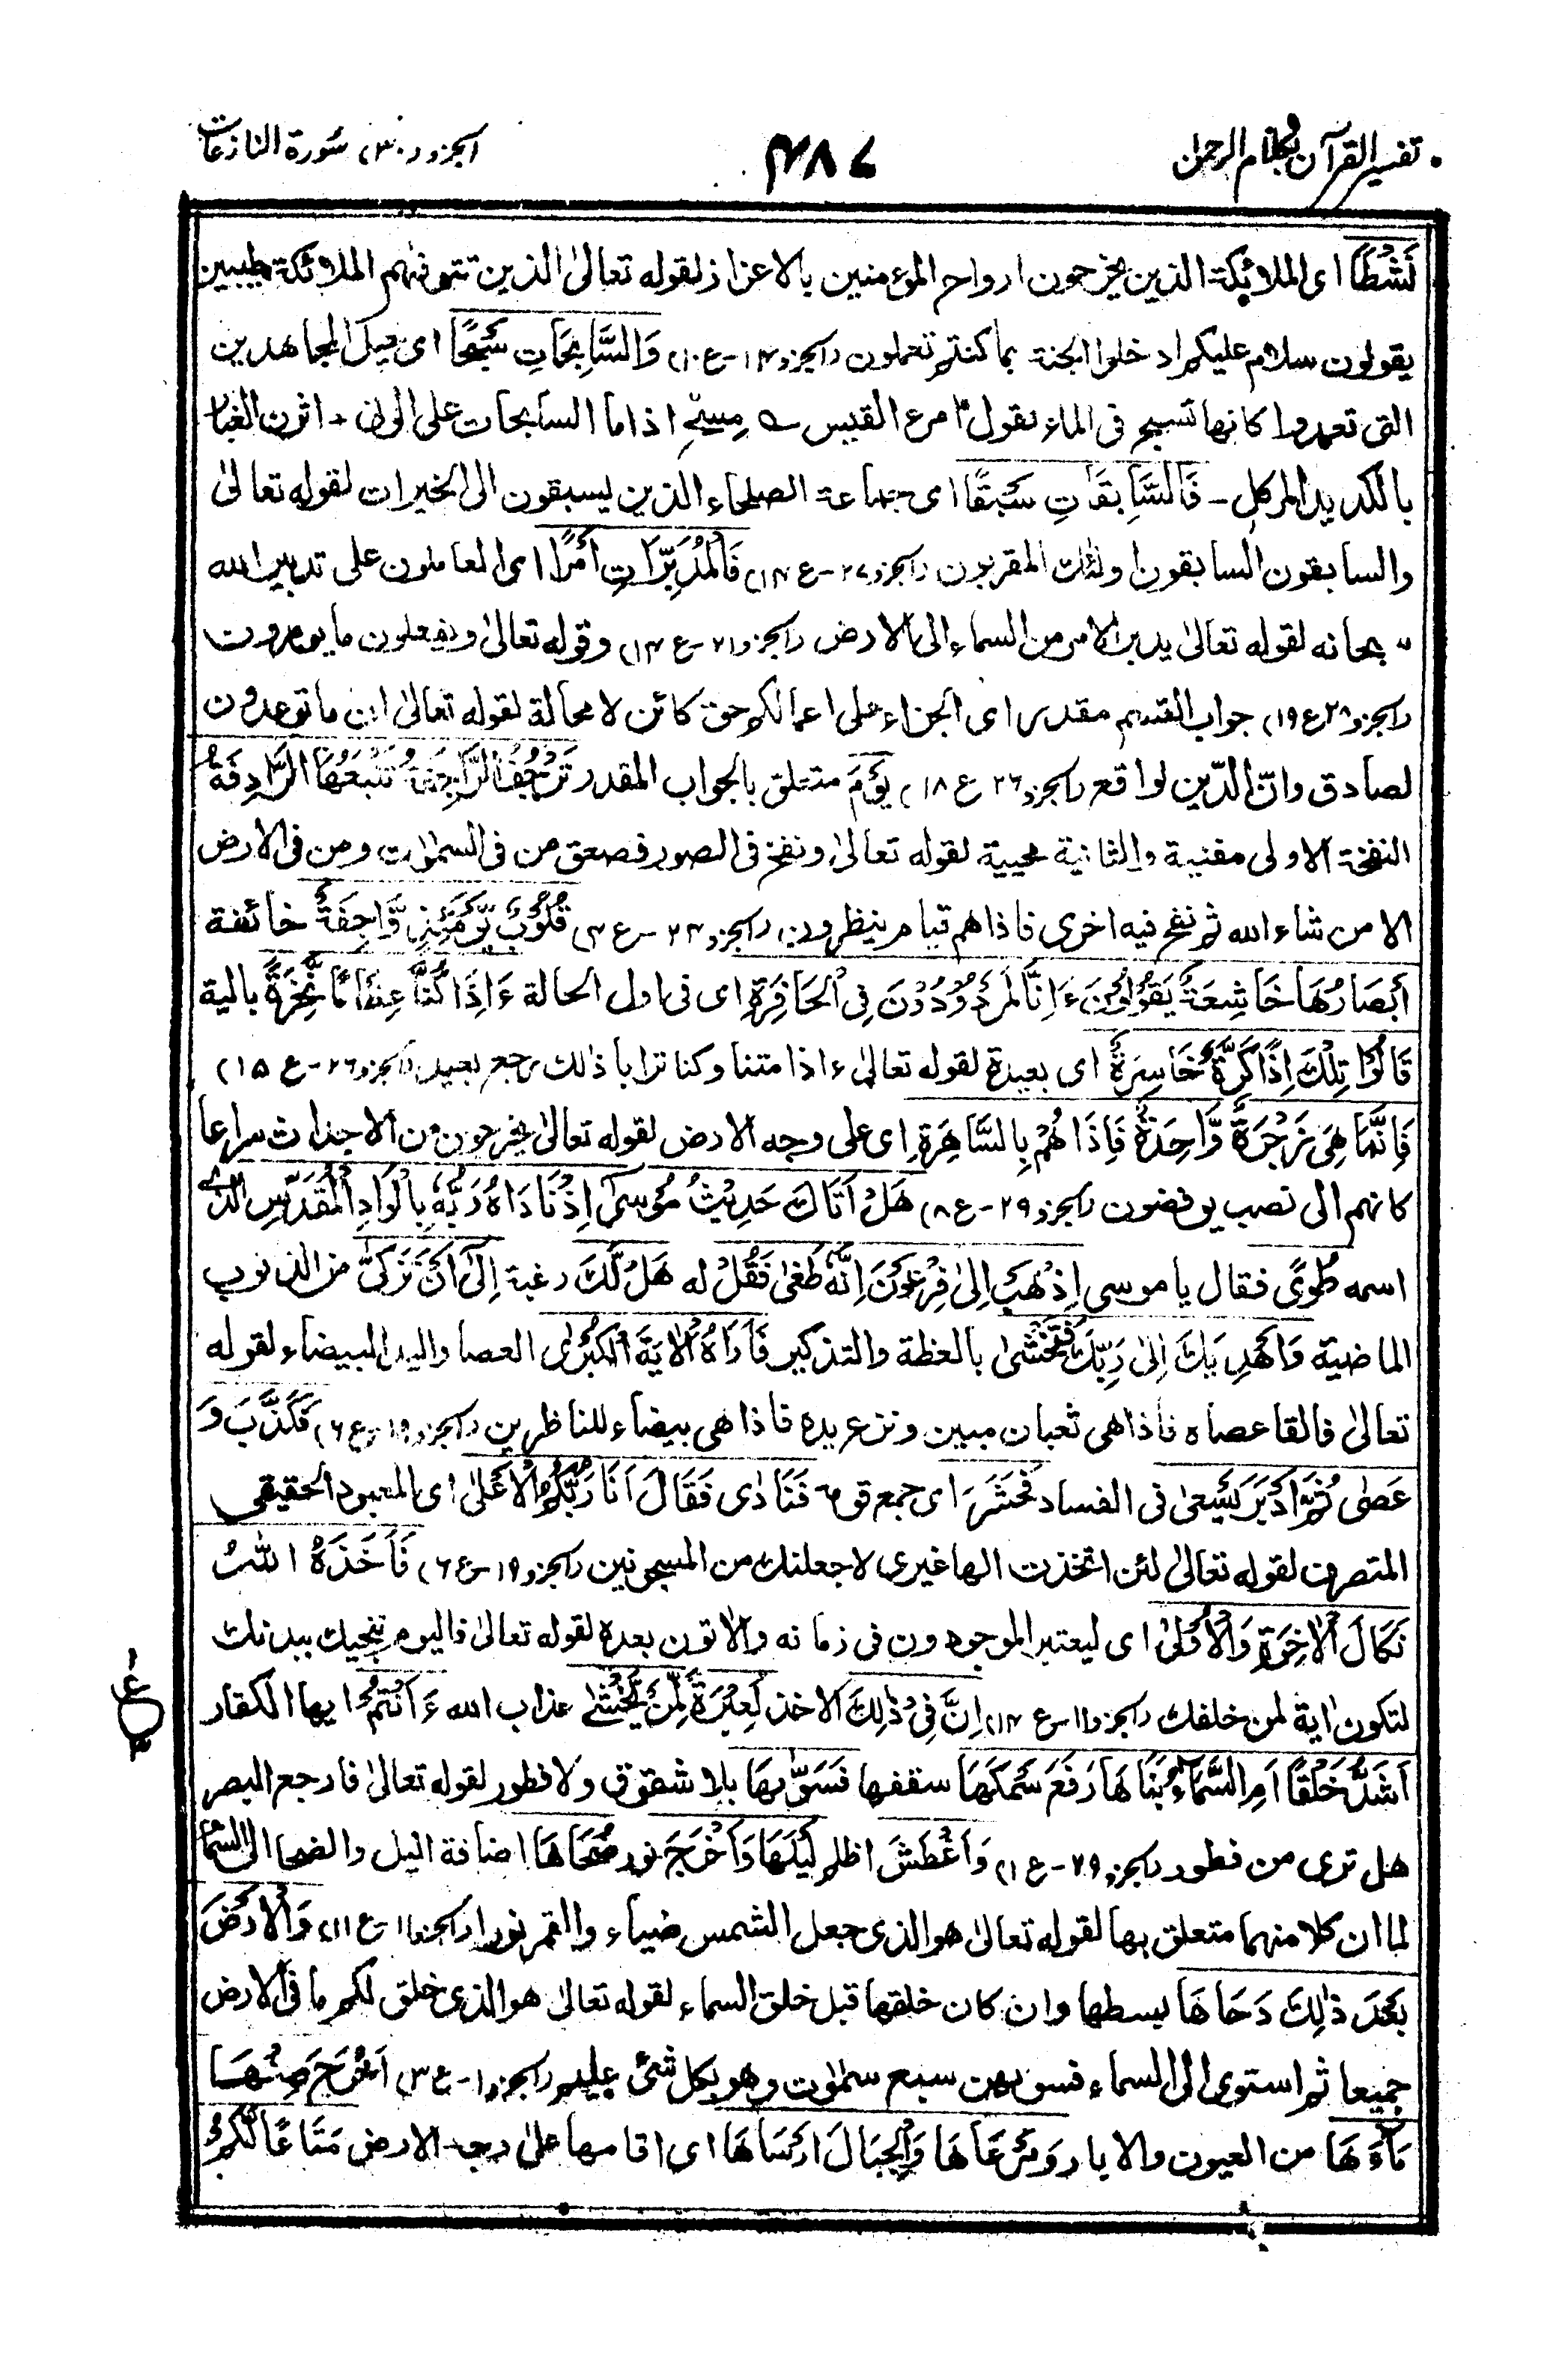 تفسير القرآن بكلام الرحمٰن
٣٨٧
الجزو (٣٠) سورة النازعات
نَشْطًا اى الملائكة الذين يخرجون ارواح المؤمنين بالاعزاز لقوله تعالىٰ الذين تتوفهم الملائكة طيبين
يقولون سلام عليكم ادخلوا الجنة بما كنتم تعملون (الجزو ١٤-ع ١٠) وَالسَّابِحَاتِ سَبْحًا اى خيل المجاهدين
التى تعدوا كانها تسبح فى الماء لقول امرء القيس مِسَحٍّ اذا ما السابحات على الونى - اثرن الغبار
بالكديد المركل - فَالسَّابِقَاتِ سَبْقًا اى جماعة الصلحاء الذين يسبقون الى الخيرات لقوله تعالىٰ
والسابقون السابقون اولئك المقربون (الجزو ٢٧-ع ١٤) فَالْمُدَبِّرَاتِ اَمْرًا اى العاملون على تدبير الله
سبحانه لقوله تعالىٰ يدبر الامر من السماء الى الارض (الجزو ٢١-ع ١٤) وقوله تعالىٰ ويفعلون ما يومرون
(الجزو ٢٨ ع ١٩) جواب القسم مقدر اى الجزاء على اعمالكم حق كائن لا محالة لقوله تعالىٰ ان ما توعدون
لصادق وانّ الدّين لواقع (الجزو ٢٦ ع ١٨) يَوْمَ متعلق بالجواب المقدر تَرْجُفُ الرَّاجِفَةُ تَتْبَعُهَا الرَّادِفَةُ
النفخة الاولى مفنية والثانية محيية لقوله تعالىٰ ونفخ فى الصور فصعق من فى السمٰوٰت ومن فى الارض
الا من شاء الله ثم نفخ فيه اخرى فاذاهم قيام ينظرون (الجزو ٢٤-ع ٤) قُلُوْبٌ يَّوْمَئِذٍ وَّاجِفَةٌ خائفة
اَبْصَارُهَا خَاشِعَةٌ يَقُوْلُوْنَ ءَاِنَّا لَمَرْدُوْدُوْنَ فِى الْحَافِرَةِ اى فى اول الحالة ءَاِذَا كُنَّا عِظَامًا نَّخِرَةً بالية
قَالُوْا تِلْكَ اِذًا كَرَّةٌ خَاسِرَةٌ اى بعيدة لقوله تعالىٰ ءاذا متنا وكنا ترابا ذلك رجع بعيد (الجزو ٢٦-ع ١٥)
فَاِنَّمَا هِىَ زَجْرَةٌ وَّاحِدَةٌ فَاِذَا هُمْ بِالسَّاهِرَةِ اى على وجه الارض لقوله تعالىٰ يخرجون من الاجداث سراعا
كانهم الى نصب يوفضون (الجزو ٢٩-ع ٨) هَلْ اَتَاكَ حَدِيْثُ مُوْسىٰ اِذْ نَادَاهُ رَبُّهٗ بِالْوَادِ الْمُقَدَّسِ الذى
اسمه طُوًى فقال يا موسى اِذْهَبْ اِلىٰ فِرْعَوْنَ اِنَّهٗ طَغىٰ فَقُلْ له هَلْ لَّكَ رغبة اِلىٰ اَنْ تَزَكّىٰ من الذنوب
الماضية وَاَهْدِيَكَ اِلىٰ رَبِّكَ فَتَخْشىٰ بالعظة والتذكير فَاَرَاهُ الْاٰيَةَ الْكُبْرٰى العصا واليد البيضاء لقوله
تعالىٰ فالقا عصاه فاذا هى ثعبان مبين ونزع يده فاذا هى بيضاء للناظرين (الجزو ١٩-ع ٦) فَكَذَّبَ وَ
عَصىٰ ثُمَّ اَدْبَرَ يَسْعىٰ فى الفساد فَحَشَرَ اى جمع قومه فَنَادٰى فَقَالَ اَنَا رَبُّكُمُ الْاَعْلىٰ اى المعبود الحقيقى
المتصرف لقوله تعالىٰ لئن اتخذت الها غيرى لاجعلنك من المسجونين (الجزو ١٩-ع ٦) فَاَخَذَهُ اللهُ
نَكَالَ الْاٰخِرَةِ وَالْاُوْلىٰ اى ليعتبر الموجودون فى زمانه والاتون بعده لقوله تعالىٰ فاليوم ننجيك ببدنك
لتكون لمن خلفك اٰية (الجزو ١١-ع ١٤) اِنَّ فِىْ ذٰلِكَ الاخذ لَعِبْرَةً لِّمَنْ يَّخْشىٰ عذاب الله ءَاَنْتُمْ ايها الكفار
اَشَدُّ خَلْقًا اَمِ السَّمَاءُ بَنَاهَا رَفَعَ سَمْكَهَا سقفها فَسَوّٰىهَا بلا شقوق ولا فطور لقوله تعالىٰ فارجع البصر
هل ترى من فطور (الجزو ٢٩-ع ١) وَاَغْطَشَ اظلم لَيْلَهَا وَاَخْرَجَ نور ضُحَاهَا اضافة اليل والضحا الى السما
لما ان كلا منهما متعلق بها لقوله تعالىٰ هو الذى جعل الشمس ضياء والقمر نورا (الجزو ١١-ع ١١) وَالْاَرْضَ
بَعْدَ ذٰلِكَ دَحَاهَا بسطها وان كان خلقها قبل خلق السماء لقوله تعالىٰ هو الذى خلق لكم ما فى الارض
جميعا ثم استوى الى السماء فسوىهن سبع سمٰوٰت وهو بكل شئ عليم (الجزو ١-ع ٣) اَخْرَجَ مِنْهَا
مَاءَهَا من العيون والابار وَمَرْعَاهَا وَالْجِبَالَ اَرْسَاهَا اى اقامها علىٰ وجه الارض مَتَاعًا لَّكُمْ